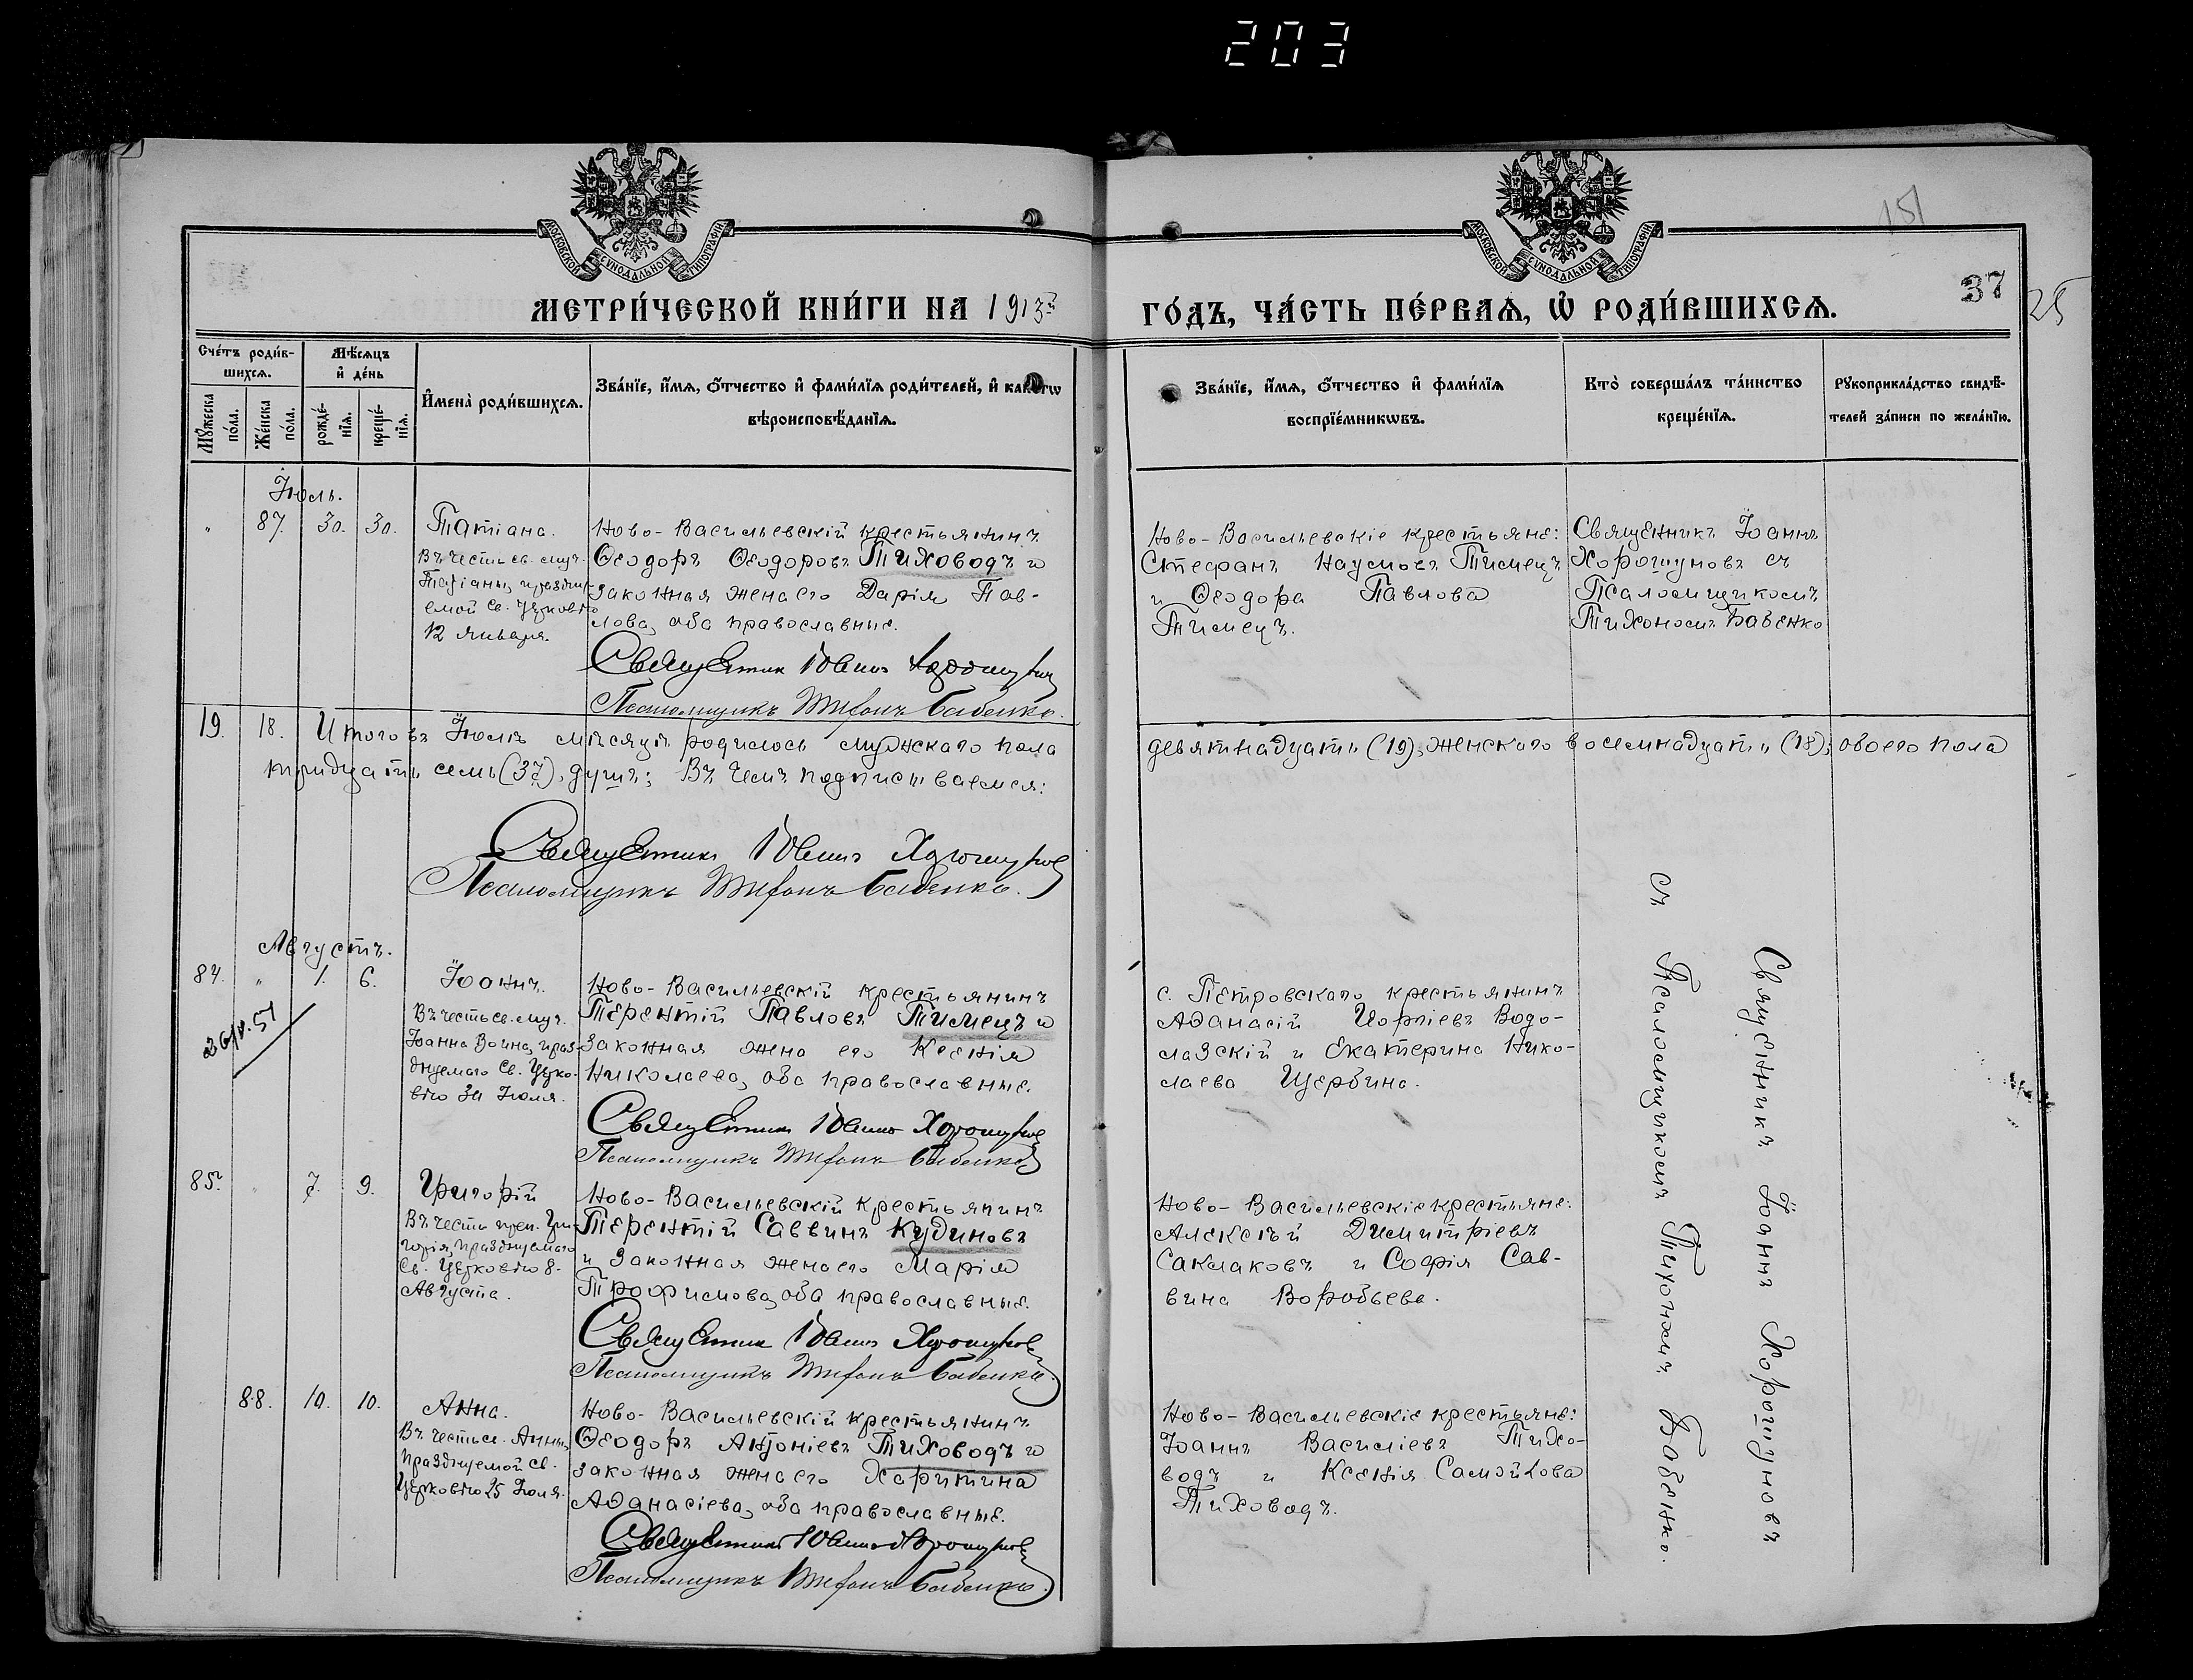 203
151
37
25
МОСКОВСКОЙ СѴНОДАЛЬНОЙ ТИПОГРАФІИ
МОСКОВСКОЙ СѴНОДАЛЬНОЙ ТИПОГРАФІИ
МЕТРИ́ЧЕСКОЙ КНИ́ГИ НА 1913й
ГО́ДЪ, ЧА́СТЬ ПЕ́РВАѦ, Ѡ҆ РОДИ́ВШИХСѦ.
Сче́тъ роди́в-
шихсѧ.
Мѣ́сѧцъ
и҆ де́нь
Мꙋ́жеска по́ла.
Же́нска по́ла.
рожде́-
нїѧ.
креще́-
нїѧ.
И҆мена̀ роди́вшихсѧ.
Зва́нїе, и҆́мѧ, ѻ҆́тчество и҆ фами́лїѧ роди́телей, и҆ како́гѡ
вѣроисповѣ́данїѧ.
Зва́нїе, и҆́мѧ, ѻ҆́тчество и҆ фами́лїѧ
воспрїе́мникѡвъ.
Кто̀ соверша́лъ та́инство
креще́нїѧ.
Рꙋкоприкла́дство свидѣ́-
телей за́писи по жела́нїю.
Іюль.
" 87. 30. 30.
Татіана.
Въ честь св. муч.
Татіаны, праздну-
емой Св. Церковію
12 Января.
Ново-Васильевскій крестьянинъ
Ѳеодоръ Ѳеодоровъ Тиховодъ и
законная жена его Дарія Пав-
лова, оба православные.
Священник Іоанн Хорошунов
Псаломщикъ Тихонъ Бабенко.
Ново-Васильевскіе крестьяне:
Стефанъ Наумовъ Тимецъ
и Ѳеодора Павлова
Тимецъ.
Священникъ Іоаннъ
Хорошуновъ съ
Псаломщикомъ
Тихономъ Бабенко
19. 18. Итого въ Іюлѣ мѣсяцѣ родилось мужского пола
девятнадцать (19), женского восемнадцать (18); обоего пола
тридцать семь (37) душъ; Въ чемъ подписываемся:
Священник Іоанн Хорошунов
Псаломщикъ Тихонъ Бабенко.
Августъ.
84. " 1. 6.
Іоаннъ.
Въ честь св. муч.
Іоанна Воина, праз-
днуемаго Св. Церко-
вію 30 Іюля.
Ново-Васильевскій крестьянинъ
Терентій Павловъ Тимецъ и
законная жена его Ксенія
Николаева, оба православные.
Священник Іоанн Хорошунов
Псаломщикъ Тихонъ Бабенко
с. Петровскаго крестьянинъ
Аѳанасій Іорліевъ Водо-
лазскій и Екатерина Нико-
лаева Щербина.
85. " 7. 9.
Григорій
Въ честь преп. Гри-
горія, празднуемаго
Св. Церковію 8-
Августа.
Ново-Васильевскій крестьянинъ
Терентій Саввинъ Кудиновъ
и законная жена его Марія
Трофимова, оба православные.
Священник Іоанн Хорошунов
Псаломщикъ Тихонъ Бабенко.
Ново-Васильевскіе крестьяне:
Алексѣй Димитріевъ
Саклаковъ и Софія Сав-
вина Воробьева.
88. 10. 10.
Анна.
Въ честь св. Анны,
празднуемой Св.
Церковію 25 Іюля.
Ново-Васильевскій крестьянинъ
Ѳеодоръ Антоніевъ Тиховодъ и
законная жена его Харитина
Аѳанасіева, оба православные.
Священник Іоанн Хорошунов
Псаломщикъ Тихонъ Бабенко.
Ново-Васильевскіе крестьяне:
Іоаннъ Василіевъ Тихо-
водъ и Ксенія Самойлова
Тиховодъ.
Священникъ Іоаннъ Хорошуновъ
съ Псаломщикомъ Тихономъ Бабенко.